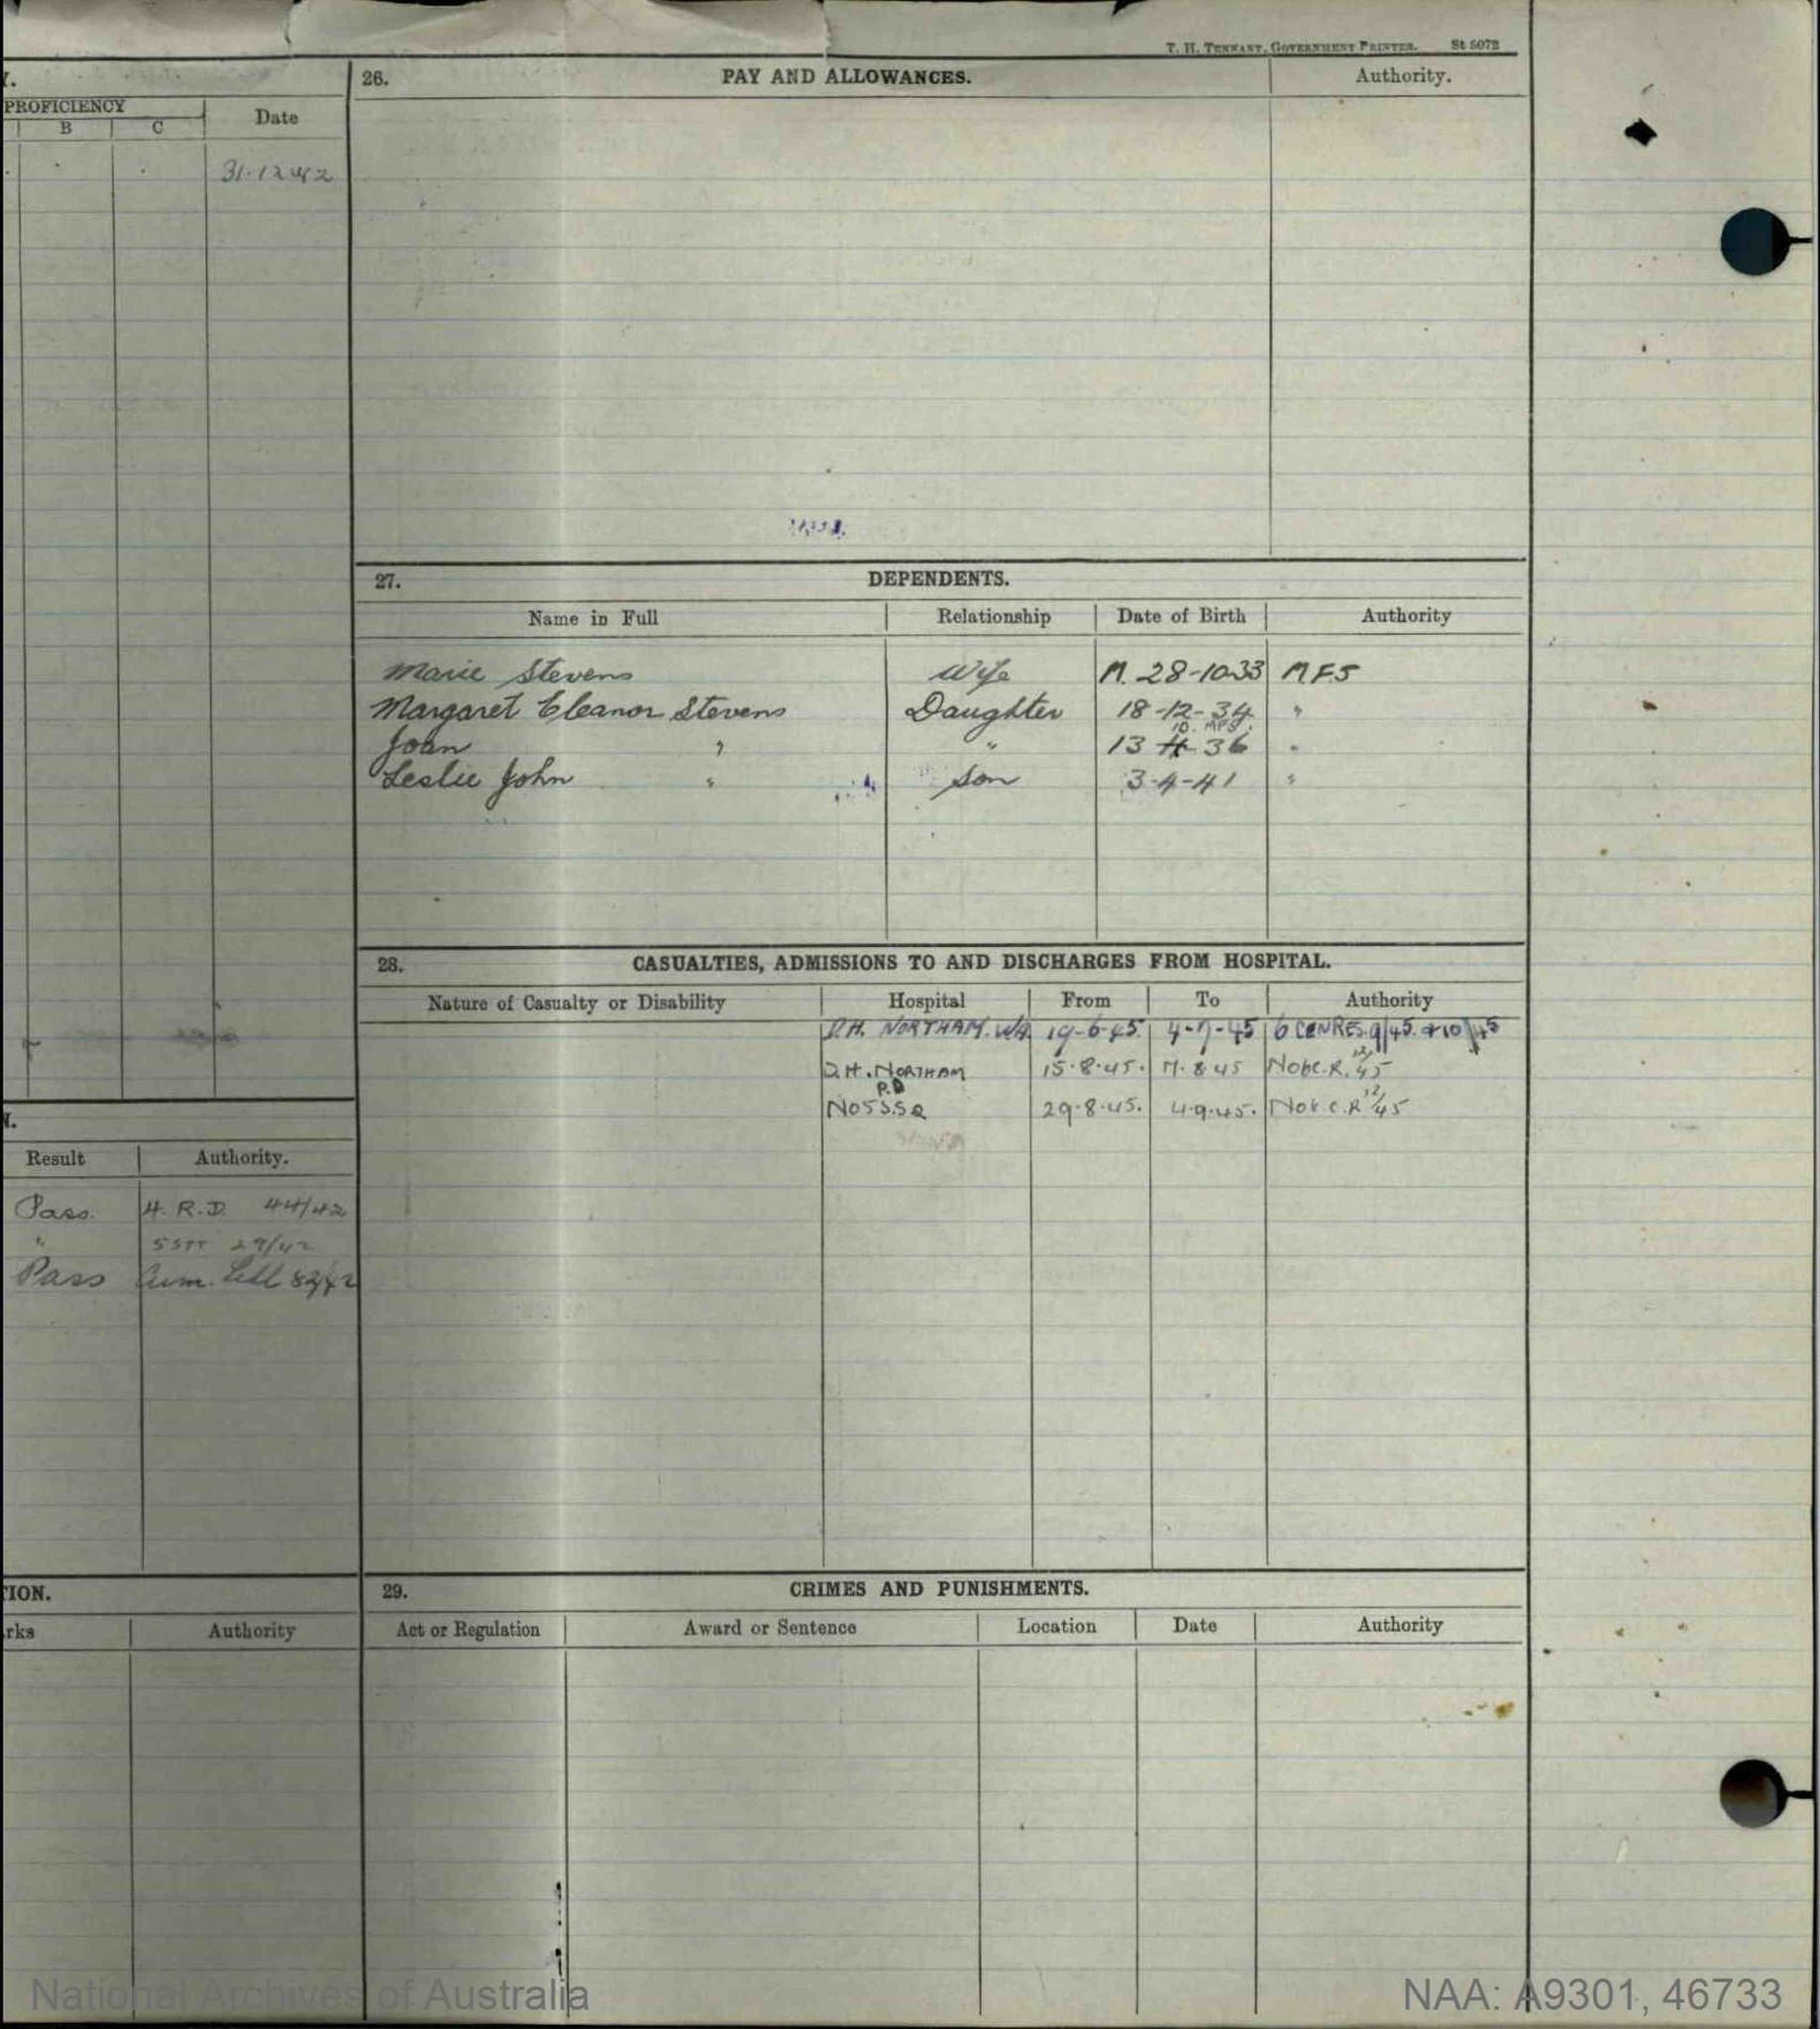 T. H. TENNANT, GOVERNMENT PRINTER. St 5072
Y.
PROFICIENCY
B C Date
31.12.42
26. PAY AND ALLOWANCES. Authority.
27. DEPENDENTS.
Name in Full Relationship Date of Birth Authority
Marie Stevens Wife M. 28-10-33 MFS
Margaret Eleanor Stevens Daughter 18-12-34 "
10. MFS.
Joan " " 13 36 "
Leslie John " Son 3-4-41 "
28. CASUALTIES, ADMISSIONS TO AND DISCHARGES FROM HOSPITAL.
Nature of Casualty or Disability Hospital From To Authority
D.H. NORTHAM. WA 19-6-45. 4-7-45 6 CENRES. 9/45. + 10/45
D.H. NORTHAM 15.8.45. 17.8.45 No6C.R. 12/45
P.D
NO5 S.S.Q 29.8.45. 4.9.45. No6.C.R 12/45
N.
Result Authority.
Pass. 4. R.D. 44/42
" 5STT 29/42
Pass 82/42
TION.
rks Authority
29. CRIMES AND PUNISHMENTS.
Act or Regulation Award or Sentence Location Date Authority
National Archives of Australia NAA: A9301, 46733